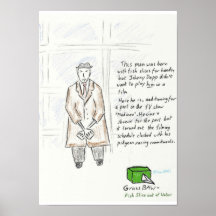 This man was born
with fish slices for hands,
but Johnny Depp didn't
want to play him in a
film.
Here he is, auditioning for
a part in the TV show
"Madmen". He was a
shoo-in for the part, but
it turned out the filming
schedule clashed with his
pidgeon racing commitments.
Gruss Baw -
Fish Slice out of Water